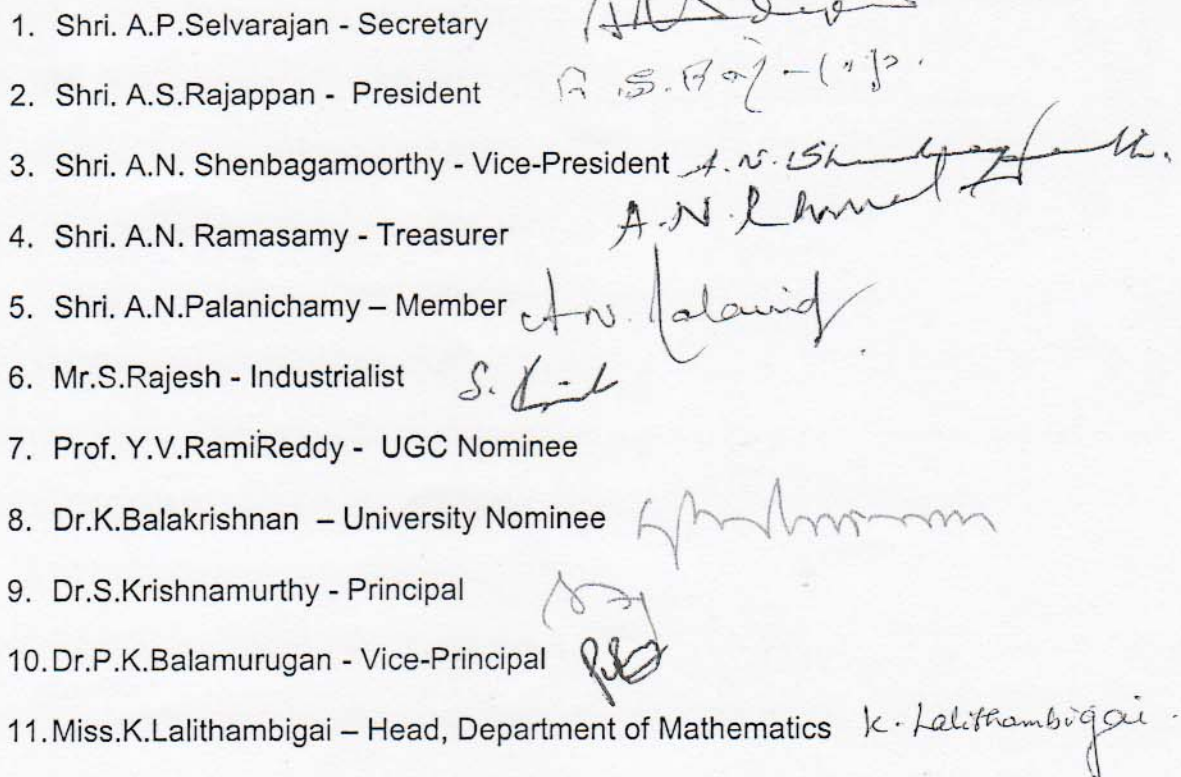 1. Shri. A.P.Selvarajan - Secretary
2. Shri. A.S.Rajappan - President
3. Shri. A.N. Shenbagamoorthy - Vice-President A.N.
4. Shri. A.N. Ramasamy - Treasurer A.N.
5. Shri. A.N.Palanichamy – Member A.N.
6. Mr.S.Rajesh - Industrialist S.
7. Prof. Y.V.RamiReddy - UGC Nominee
8. Dr.K.Balakrishnan – University Nominee
9. Dr.S.Krishnamurthy - Principal
10.Dr.P.K.Balamurugan - Vice-Principal
11.Miss.K.Lalithambigai – Head, Department of Mathematics K. Lalithambigai.